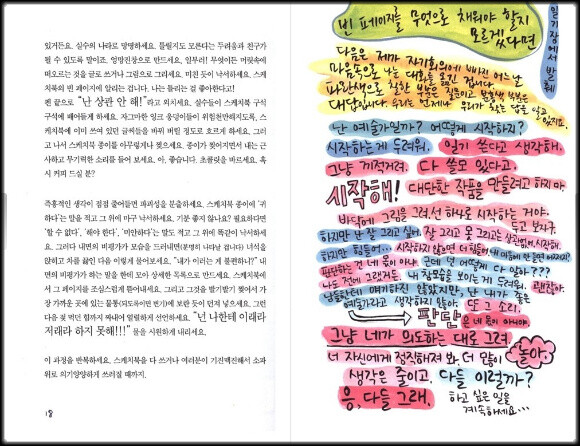 있거든요. 실수의 나라로 망명하세요. 틀릴지도 모른다는 두려움과 친구가
될 수 있도록 말이죠. 엉망진창으로 만드세요. 일부러! 무엇이든 머릿속에
떠오르는 것을 글로 쓰거나 그림으로 그리세요. 미친 듯이 낙서하세요. 스케
치북의 빈 페이지에 알리는 겁니다. 나는 틀리는 걸 좋아한다고!
펜 끝으로 "난 상관 안 해!"라고 외치세요. 실수들이 스케치북 구석
구석에 배어들게 하세요. 자그마한 잉크 웅덩이들이 위험천만해지도록, 스
케치북에 이미 쓰여 있던 글씨들을 바꿔 버릴 정도로 흐르게 하세요. 그러
고 나서 스케치북 종이를 아무렇게나 찢으세요. 종이가 찢어지면서 내는 근
사하고 무기력한 소리를 들어 보세요. 아, 좋습니다. 초콜릿을 바르세요. 혹
시 커피 드실 분?
즉흥적인 생각이 점점 줄어들면 파괴성을 분출하세요. 스케치북 종이에 '귀
하다'는 말을 적고 그 위에 마구 낙서하세요. 기분 좋지 않나요? 필요하다면
'할 수 없다', '해야 한다', '미안하다'는 말도 적고 그 위에 똑같이 낙서하세
요. 그러다 내면의 비평가가 모습을 드러내면(분명히 나타날 겁니다) 녀석을
앉히고 차를 끓인 다음 이렇게 물어보세요. "내가 이러는 게 불편하니?" 내
면의 비평가가 하는 말을 한데 모아 상세한 목록으로 만드세요. 스케치북에
서 그 페이지를 조심스럽게 뜯어내세요. 그리고 그것을 발기발기 찢어서 가
장 가까운 곳에 있는 물통(되도록이면 변기)에 보란 듯이 던져 넣으세요. 그런
다음 젖 먹던 힘까지 짜내어 열렬하게 선언하세요. "넌 나한테 이래라
저래라 하지 못해!!!" 물을 시원하게 내리세요.
이 과정을 반복하세요. 스케치북을 다 쓰거나 여러분이 기진맥진해서 소파
위로 의기양양하게 쓰러질 때까지.
18
빈 페이지를 무엇으로 채워야 할지
모르겠다면
일기장에서 발췌
다음은 제가 자기회의에 빠진 어느 날
마음속으로 나눈 대화를 옮긴 겁니다.
파란색으로 칠한 부분은 질문이고 분홍색 부분은
대답입니다. 우리는 언제나 우리가 모르는 답을 알고
있지요.
난 예술가일까? 어떻게 시작하지?
시작하는 게 두려워. 일기 쓴다고 생각해.
그냥 끼적거려. 다 쓸모 있다고.
시작해! 대단한 작품을 만들려고 하지 마.
바닥에 그림을 그려. 선 하나로 시작하는 거야.
두고 보자구.
하지만 난 잘 그리고 싶어. 잘 그리고 못 그리고는 상관없어. 시작해.
하지만 힘들어... 시작하지 않으면 더 힘들어.
판단하는 건 네 몫이 아냐. 근데 넌 어떻게 다 알아???
나도 전에 그랬거든. 내 창피한 모습을 보이는 게 두려워. 괜찮아.
예술가라고 생각하지 않아. 또 그 소리.
판단은 네 몫이 아니야.
그냥 네가 의도하는 대로 그려
너 자신에게 정직해져 봐. 더 많이
놀아.
생각은 줄이고. 다들 이럴까?
응, 다들 그래.
하고 싶은 일을
계속하세요...